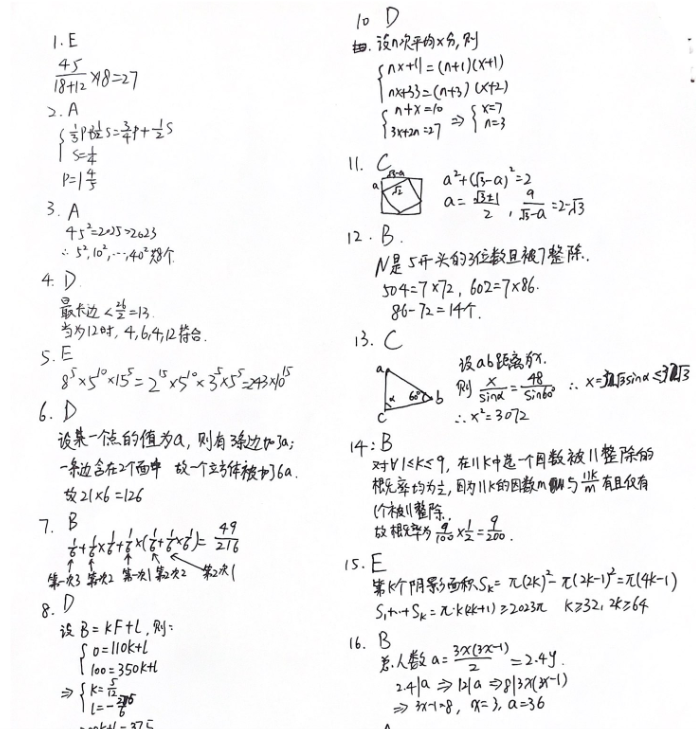 1. E
45/(18+12) × 18 = 27
2. A
{ 1/3 P + 1/2 S = 3/4 P + 1/2 S
S = 1/4
P = 1 4/5
3. A
45² = 2025 > 2023
∴ 5², 10², ..., 40² 共8个
4. D.
最长边 < 26/2 = 13.
当为12时, 4,6,4,12符合.
5. E
8⁵×5¹⁰×15⁵ = 2¹⁵×5¹⁰×3⁵×5⁵ = 243×10¹⁵
6. D
设某一个点的值为a, 则有3条边加3a;
一条边含在2个面中 故一个立方体被加6a.
故21×6=126
7. B
1/6 + 1/6 × 1/6 + 1/6 × (1/6 + 1/6 × 1/6) = 49/216
第一次3 第次2 第一次1 第2次2 第2次1
8. D
设 B = kF + l, 则:
{ 0 = 110k + l
100 = 350k + l
⇒ { k = 5/12
l = -
10 D
设n次平均x分, 则
{ nx+11 = (n+1)(x+1)
nx+33 = (n+3)(x+2)
{ n+x = 10
3x+2n = 27 ⇒ { x=7
n=3
11. C
a √3-a √2
a² + (√3-a)² = 2
a = (√3±1)/2, a/(√3-a) = 2-√3
12. B.
N是5开头的3位数且被7整除.
504=7×72, 602=7×86.
86-72=14个.
13. C
a 设ab距离为x.
α 60° b 则 x/sinα = 48/sin60° ∴ x=32√3sinα ≤ 32√3
c ∴ x² = 3072
14: B
对∀1≤k≤9, 在11k中选一个因数被11整除的
概率均为1/2, 因为11k的因数m与11k/m有且仅有
1个被11整除.
故概率为 9/100 × 1/2 = 9/200.
15. E
第k个阴影面积Sk = π(2k)² - π(2k-1)² = π(4k-1)
S₁+…+Sk = π·k(2k+1) ≥ 2023π k≥32, 2k≥64
16. B
总人数 a = 3x(3x-1)/2 = 2.4y.
2.4|a ⇒ 12|a ⇒ 8|3x(3x-1)
⇒ 3x-1=8, x=3, a=36